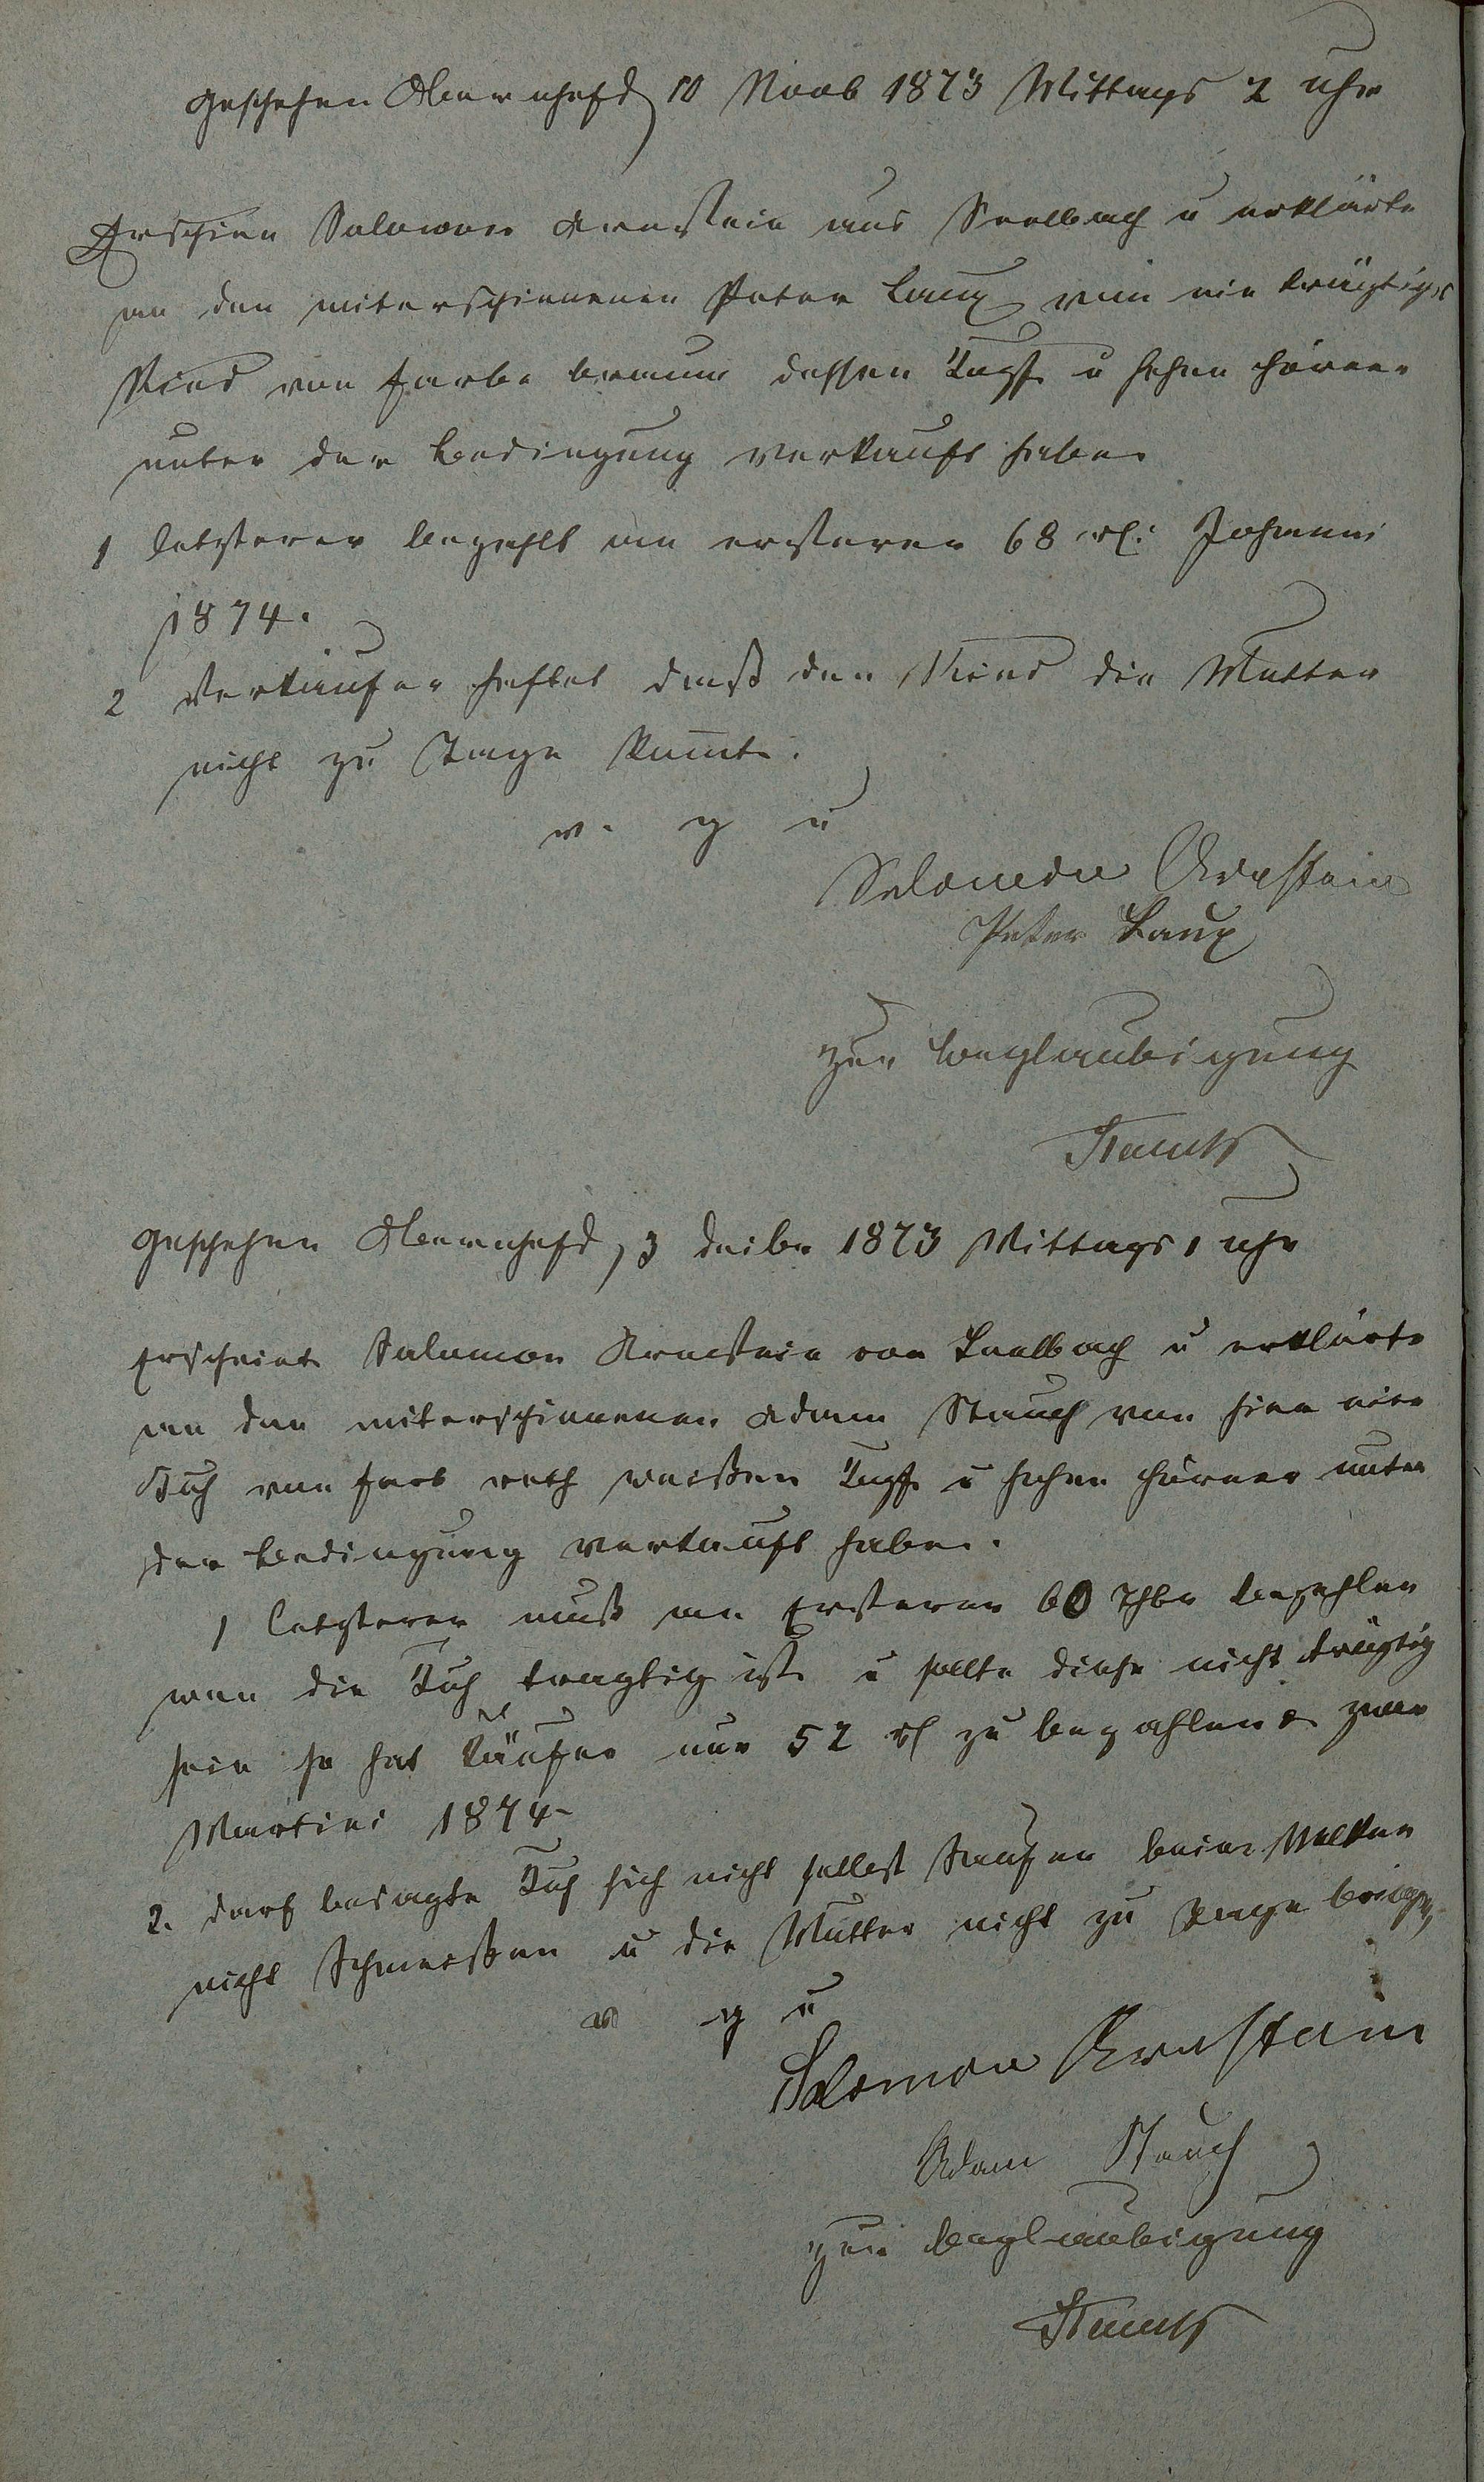 Geschehen Obernhof, 10 Novb 1873 Mittags 2 uhr
Erschien Salomon Arnstein aus Seelbach u erklärte
an den miterschienenen Peter Laux ein trächtiges
Rind von Farbe braun dessen u hohen Hörner
unter der Bedingung verkauft habe.
1 letzterer bezahlt an ersteren 68 rl: Johanni
1874.
2 Verkäufer haftet daß den Rind die Mutter
nicht zu Tage kommt.
v. g u
Salomon Arnstein
Peter Laux
Zur Beglaubigung
Geschehen Obernhof, 3 Decbr 1873 Mittags 1 uhr
Erscheint Salomon Arnstein von Seelbach u erklärte
an den miterschienenen Adam Stauch von hier eine
Kuh von Farb roth weißen u hohen Hörner unter
der Bedingung verkauft haben.
1 letzterer muß an Ersteren 60 Thlr bezahlen
wen die Kuh trachtig ist u sollte diese nicht trächtig
sein so hat Käufer nur 52 rl zu bezahlen zwar
Martini 1874
2. darf besagte Kuh sich nicht selbst Saufen beim Melken
nicht Schmeißen u die Mutter nicht zu Tage bringen,
v g u
Salomon Arnstein
Adam Stauch
Zur Beglaubigung